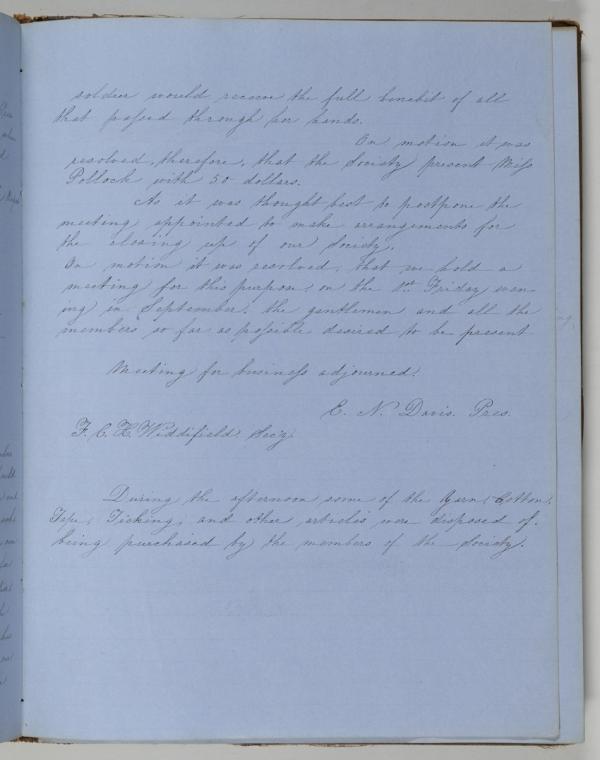 soldier would receive the full benefit of all
that passed through her hands.
On motion it was
resolved, therefore, that the Society present Miss
Pollock with 50 dollars.
As it was thought best to postpone the
meeting appointed to make arrangements for
the closing up of our Society,
On motion it was resolved, that we hold a
meeting for this purpose, on the 1st Friday even-
ing in September, the gentlemen and all the
members so far as possible desired to be present
Meeting for business adjourned.
E. N. Davis. Pres.
F. C. H. Widdifield Secy.
During the afternoon some of the Yarn, Cotton,
Tape, Ticking, and other articles were disposed of,
being purchased by the members of the Society.